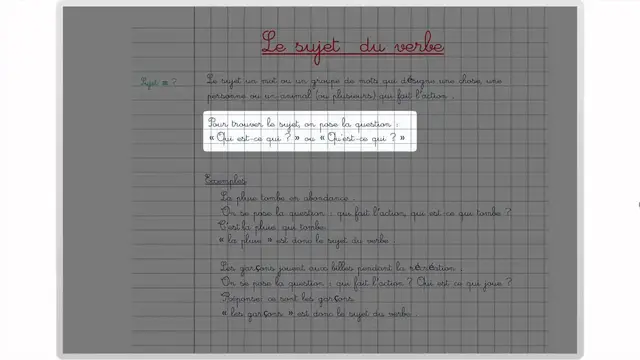 Le sujet du verbe
Sujet = ?
Le sujet un mot ou un groupe de mots qui désigne une chose, une
personne ou un animal (ou plusieurs) qui fait l'action .
Pour trouver le sujet, on pose la question :
« Qui est-ce qui ? » ou « Qu'est-ce qui ? »
Exemples
La pluie tombe en abondance .
On se pose la question : qui fait l'action, qui est ce qui tombe ?
C'est la pluie qui tombe.
« la pluie » est donc le sujet du verbe.
Les garçons jouent aux billes pendant la récréation .
On se pose la question : qui fait l'action ? Qui est ce qui joue ?
Réponse: ce sont les garçons.
« les garçons » est donc le sujet du verbe .